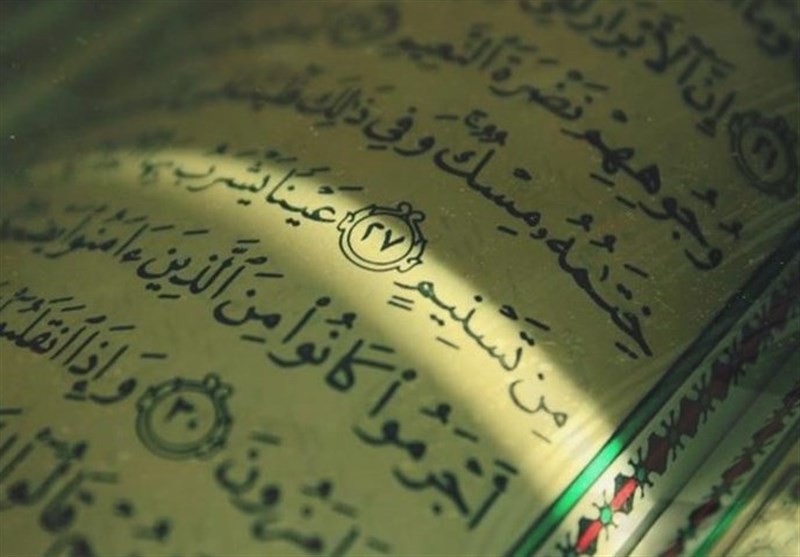 إِنَّ ٱلْأَبْرَارَ لَفِى
وُجُوهِهِمْ نَضْرَةَ ٱلنَّعِيمِ
خِتَـٰمُهُۥ مِسْكٌ وَفِى ذَٰلِكَ
مِن تَسْنِيمٍ ٢٧ عَيْنًا يَشْرَبُ بِهَا
أَجْرَمُوا۟ كَانُوا۟ مِنَ ٱلَّذِينَ ءَامَنُوا۟
٣٠ وَإِذَا ٱنقَلَبُوٓا۟
قَالُوٓا۟